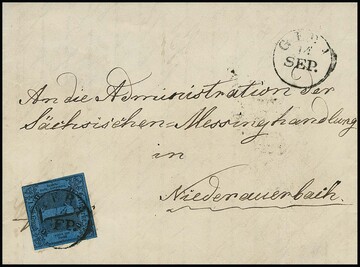 GERA
14
SEP.
An die Administration der
Sächsischen Messinghandlung
in
Niederauerbach.
GERA
SEP.